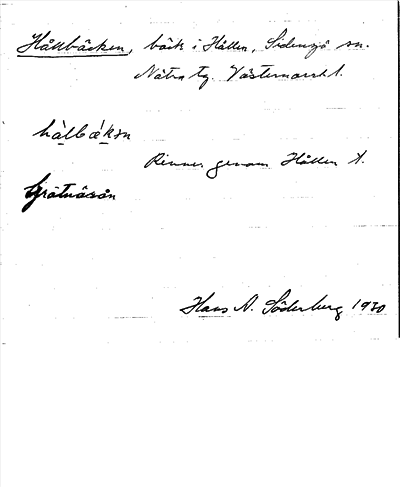 Hållbäcken, bäck i Hållen, Sidensjö sn.
Nätra tg. Västernorrl.
hålbækən
Rinner genom Hållen t.
Grätnäsån
Hans A. Söderberg 1930